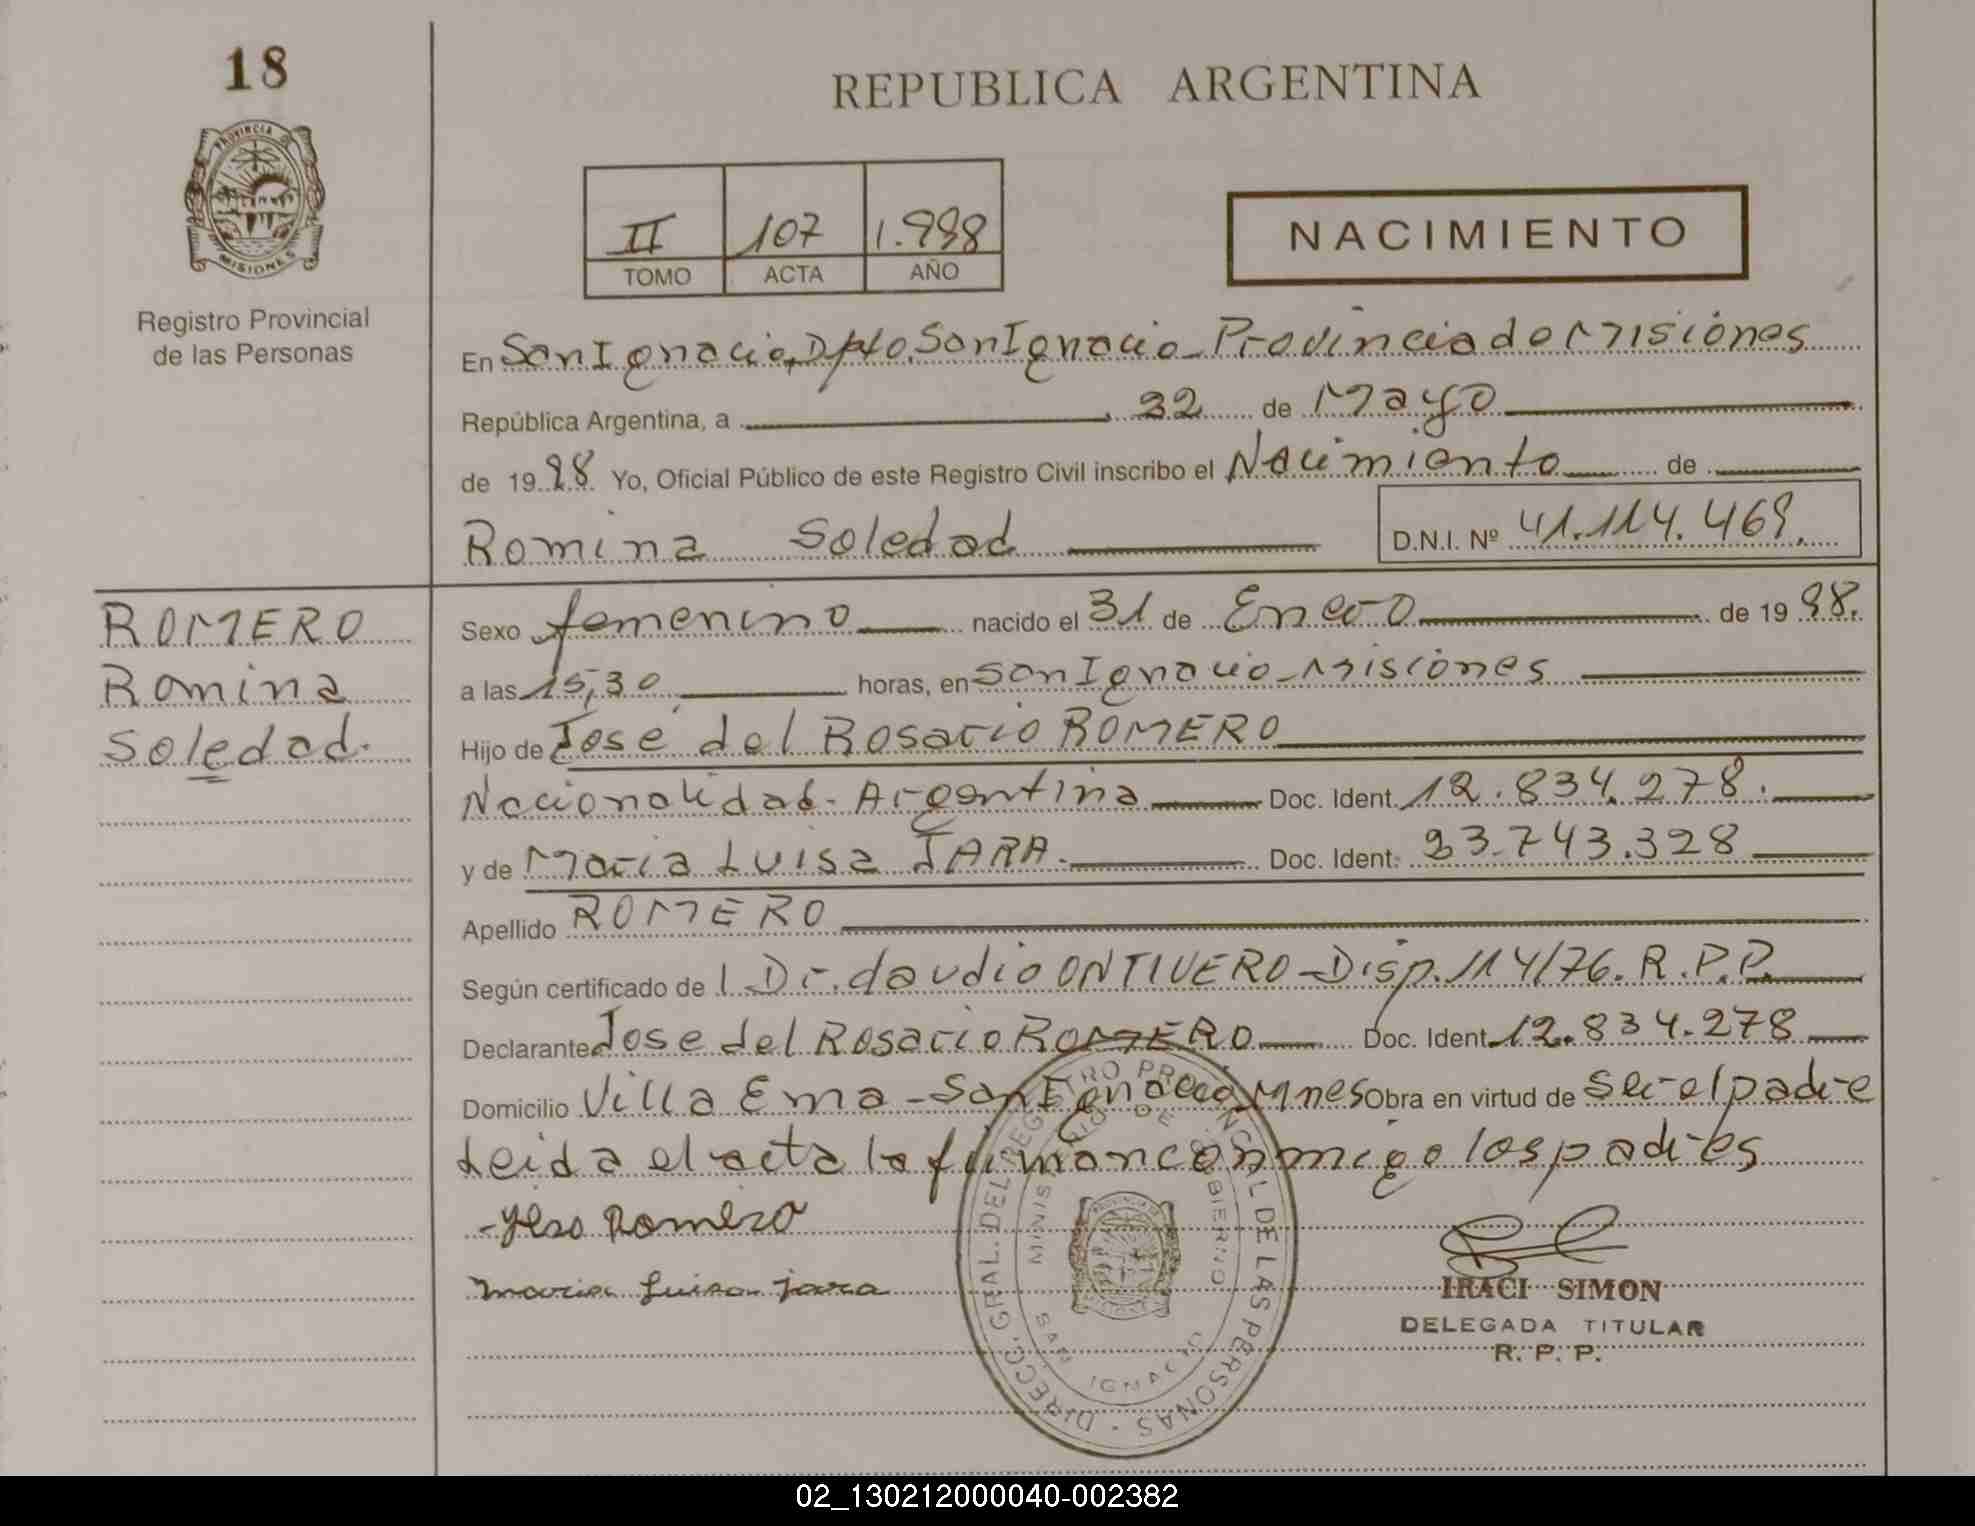 18
REPUBLICA ARGENTINA
PROVINCIA DE
MISIONES
Registro Provincial
de las Personas
II 107 1.998
TOMO ACTA AÑO
NACIMIENTO
En San Ignacio, Dpto. San Ignacio - Provincia de Misiones
República Argentina, a 22 de Mayo
de 1998. Yo, Oficial Público de este Registro Civil inscribo el Nacimiento de
Romina Soledad D.N.I. Nº 41.114.469.
ROMERO
Romina
Soledad.
Sexo femenino nacido el 31 de Enero de 1998.
a las 15,30 horas, en San Ignacio - Misiones
Hijo de José del Rosario ROMERO
Nacionalidad - Argentina Doc. Ident. 12.834.278.
y de Maria Luisa JARA. Doc. Ident. 23.743.328
Apellido ROMERO
Según certificado de l Dr. Claudio ONTIVERO - Disp. 114/76. R.P.P.
Declarante Jose del Rosario ROMERO Doc. Ident. 12.834.278
Domicilio Villa Ema - San Ignacio Mnes Obra en virtud de Ser el padre
Leida el acta la firman conmigo los padres
Romero
Maria Luisa Jara
DIRECC. GRAL. DEL REGISTRO PROVINCIAL DE LAS PERSONAS
MINISTERIO DE GOBIERNO
SAN IGNACIO
IRACI SIMON
DELEGADA TITULAR
R. P. P.
02_130212000040-002382